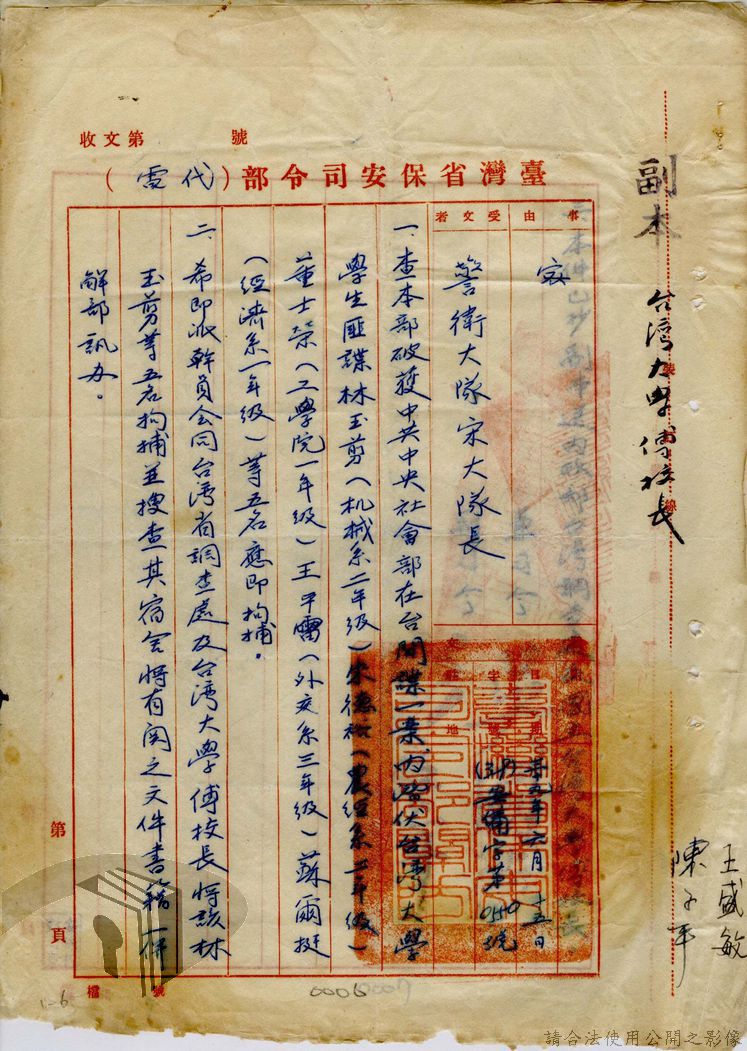 收文第　　　號
臺灣省保安司令部（代電）
副本
台湾大學傅校長
事由
受文者
警衛大隊宋大隊長
卅九年六月十五日
安備字第0450號
一、查本部破獲中共中央社會部在台間諜一案內潛伏台湾大學
學生匪諜林玉剪（机械系二年級）朱德裕（農經系二年級）
董士荣（工學院一年級）王平（外交系三年級）蘇爾挺
（經濟系一年級）等五名應即拘捕。
二、希即派幹員会同台湾省調查處及台湾大學傅校長將該林
玉剪等五名拘捕並搜查其宿舍將有関之文件書籍一併
解部訊办。
王盛敏
陳子平
第　頁
檔號
0006
1-6
請合法使用公開之影像